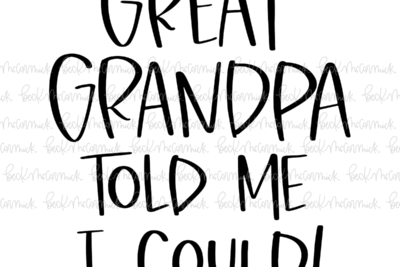 GREAT
GRANDPA
TOLD ME
I COULD!